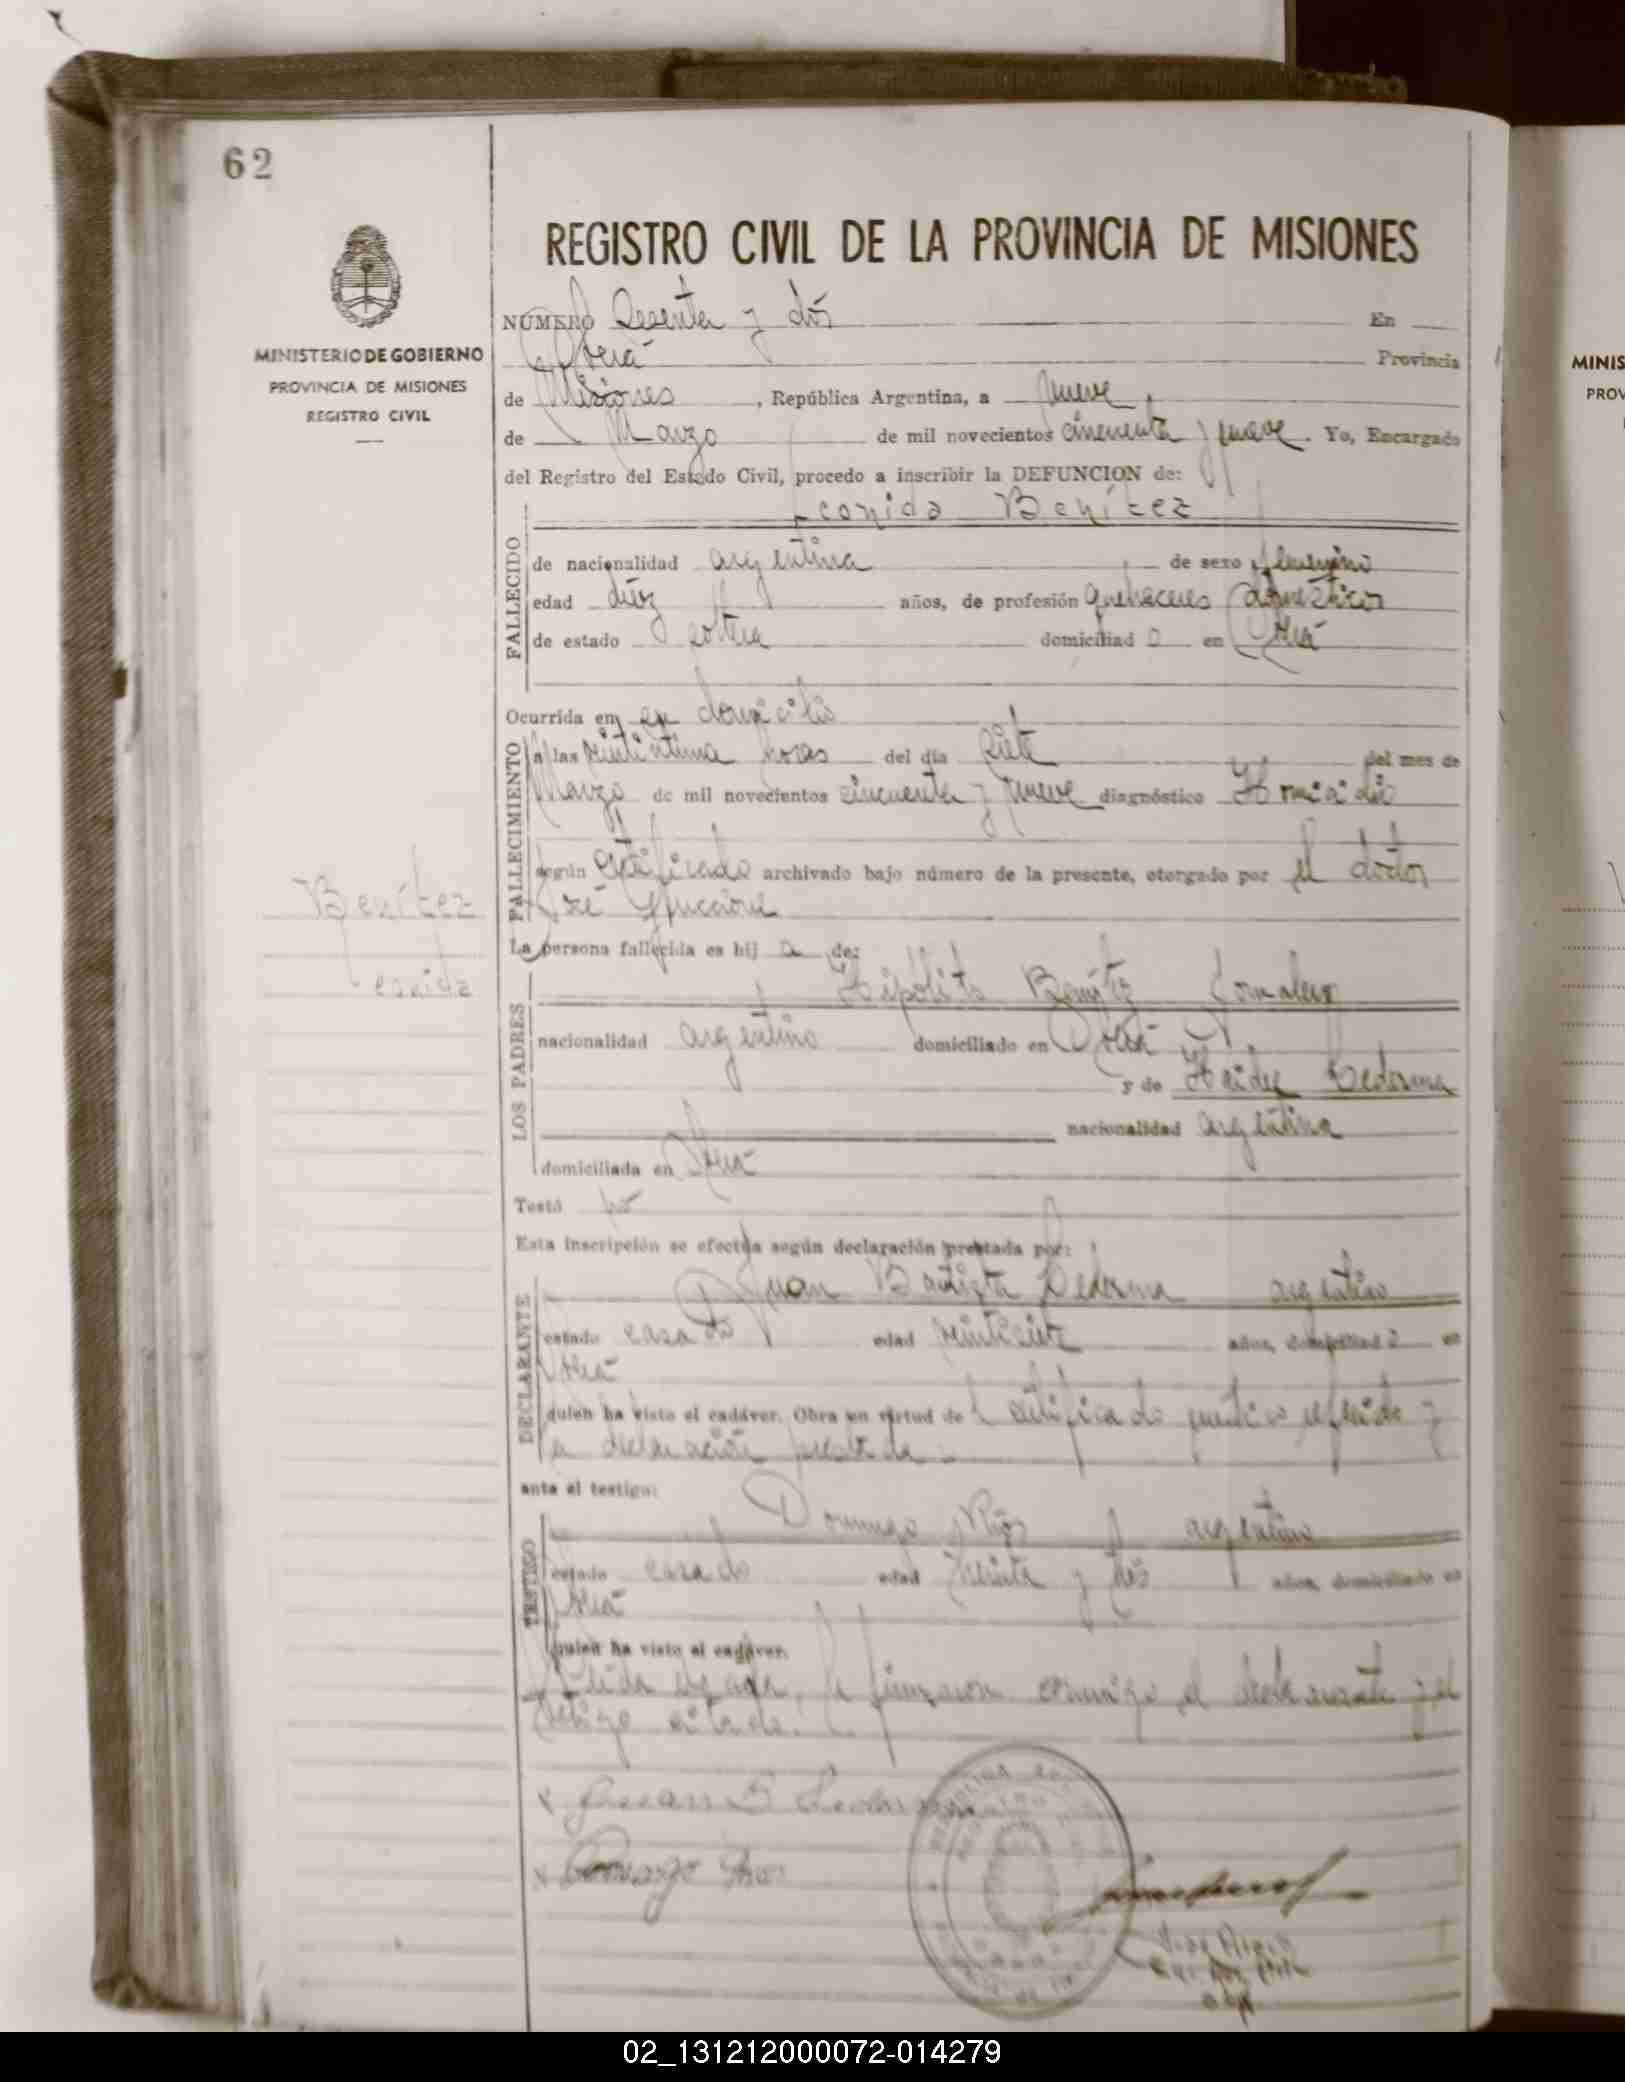 62
REGISTRO CIVIL DE LA PROVINCIA DE MISIONES
MINISTERIO DE GOBIERNO
PROVINCIA DE MISIONES
REGISTRO CIVIL
NÚMERO Sesenta y dós En
Oberá Provincia
de Misiones, República Argentina, a nueve
de Marzo de mil novecientos cincuenta y nueve. Yo, Encargado
del Registro del Estado Civil, procedo a inscribir la DEFUNCION de:
Leonida Benítez
FALLECIDO
de nacionalidad argentina de sexo femenino
edad diéz años, de profesión quehaceres domésticos
de estado soltera domiciliad a en Oberá
FALLECIMIENTO
Ocurrida en en domicilio
a las veintiuna horas del día siete del mes de
Marzo de mil novecientos cincuenta y nueve diagnóstico Homicidio
según certificado archivado bajo número de la presente, otorgado por el doctor
José
Benítez
Leonida
La persona fallecida es hij a de:
LOS PADRES
Hipólito Benítez
nacionalidad argentino domiciliado en Oberá
y de Haidee Ledesma
nacionalidad argentina
domiciliada en Oberá
Testó no
Esta inscripción se efectúa según declaración prestada por:
DECLARANTE
Juan Bautista Ledesma argentino
estado casado edad veintisiete años, domiciliad o en
Oberá
quien ha visto el cadáver. Obra en virtud del certificado médico referido y
la declaración prestada.-
ante el testigo:
TESTIGO
Domingo Ríos argentino
estado casado edad treinta y tres años, domiciliado en
Oberá
quien ha visto el cadáver.
Leída el acta, la firmaron conmigo el declarante y el
testigo citado.
x Juan B Ledesma
x Domingo Rios
02_131212000072-014279
MINIS
PROV